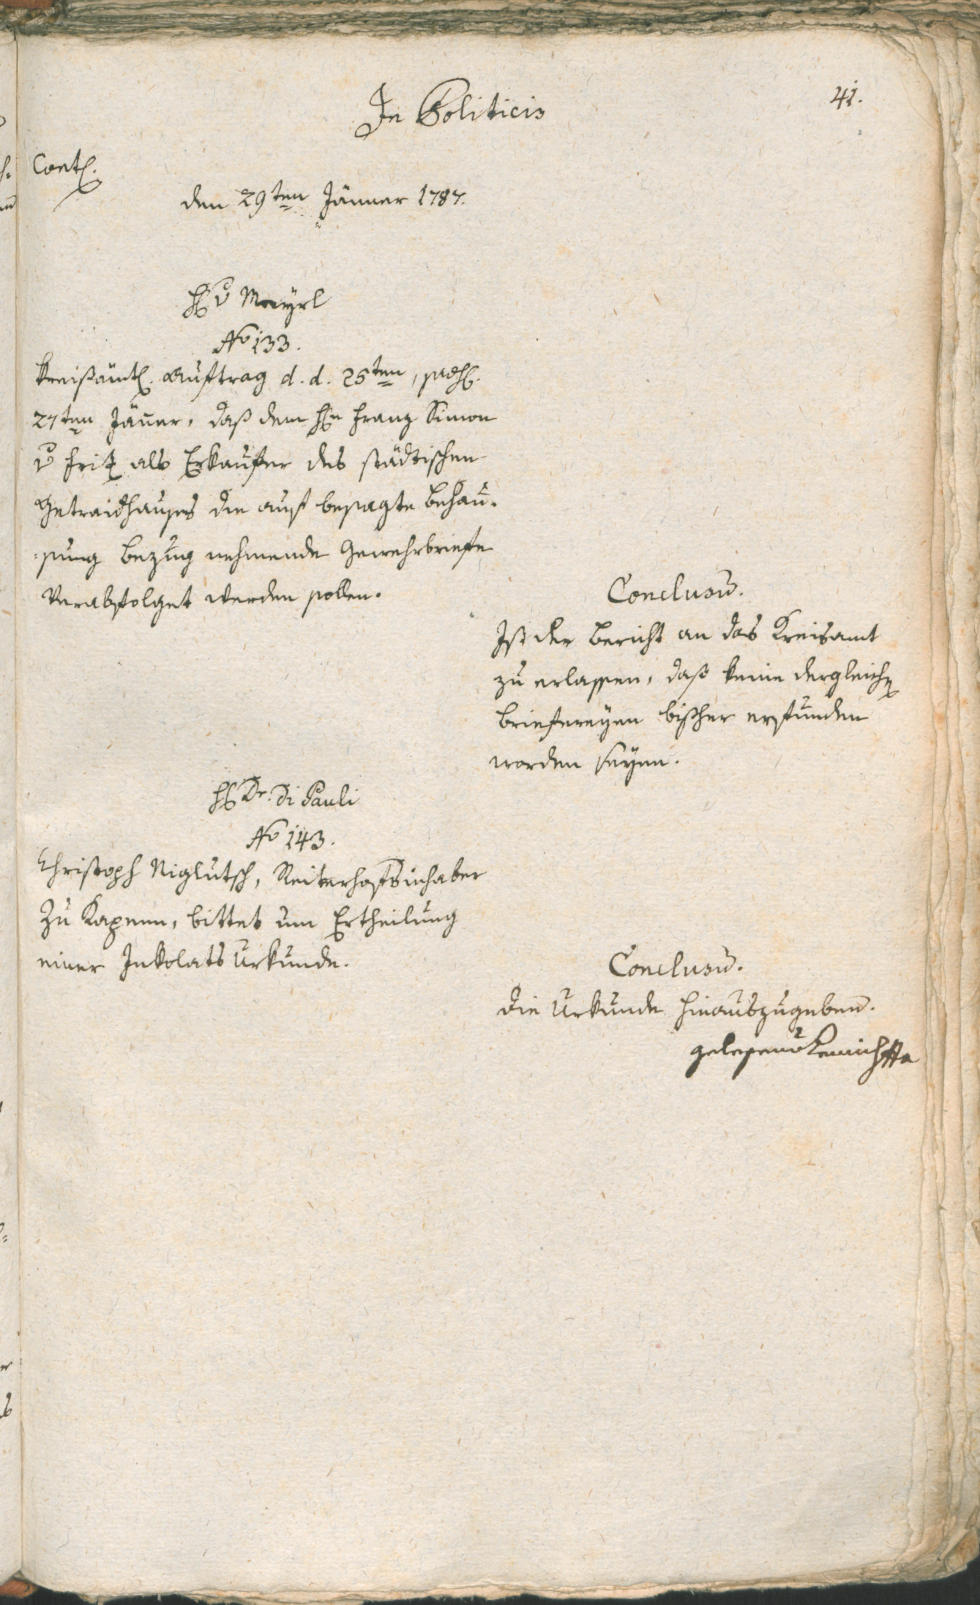 In Politicis
41.
Cont.
den 29ten Jänner 1787.
H v Mayrl
No 133.
Kreißämtl. Auftrag d. d. 25ten, praes.
27ten Jäner, daß dem Hn Franz Simon
v Fritz als Erkaufer des städtischen
Getraidhauses die auf besagte Behau-
sung Bezug nehmende Gewehrbriefe
Verabfolget werden sollen.
Conclusū.
Ist der Bericht an das Kreisamt
zu erlassen, daß keine dergleichē
Briefereyen bißher erfunden
worden seyen.
H Dr. Di Pauli
No 143.
Christoph Niglutsch, Reiterhofsinhaber
zu Kapenn, bittet um Ertheilung
einer Inkolats Urkunde.
Conclusū.
Die Urkunde hinauszugeben.
gelesen